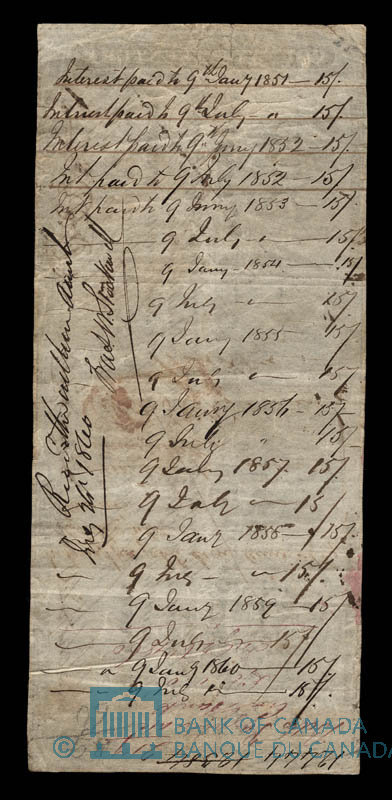 Interest paid to 9th Jany 1851 — 15/.
Interest paid to 9th July — " 15/.
Interest paid to 9th Jany 1852 — 15/.
Int paid to 9th July 1852 — 15/.
Int paid to 9 Jany 1853 — 15/.
— 9 July " — 15/.
9 Jany — 1854 — 15/
9 July " — 15/
9 Jany 1855 15/
9 July " — 15/
9 Jany 1856 — 15/-
9 July " 15/.
9 Jany 1857 15/.
— 9 July — " 15/
— 9 Jany 1858 — 15/.
— 9 July — " 15/.
— 9 Jany 1859 — 15/
— 9 July 15/
" 9 Jany 1860 — 15/
— 9 July " — 15/.
July 1860
BANK OF CANADA
BANQUE DU CANADA
©